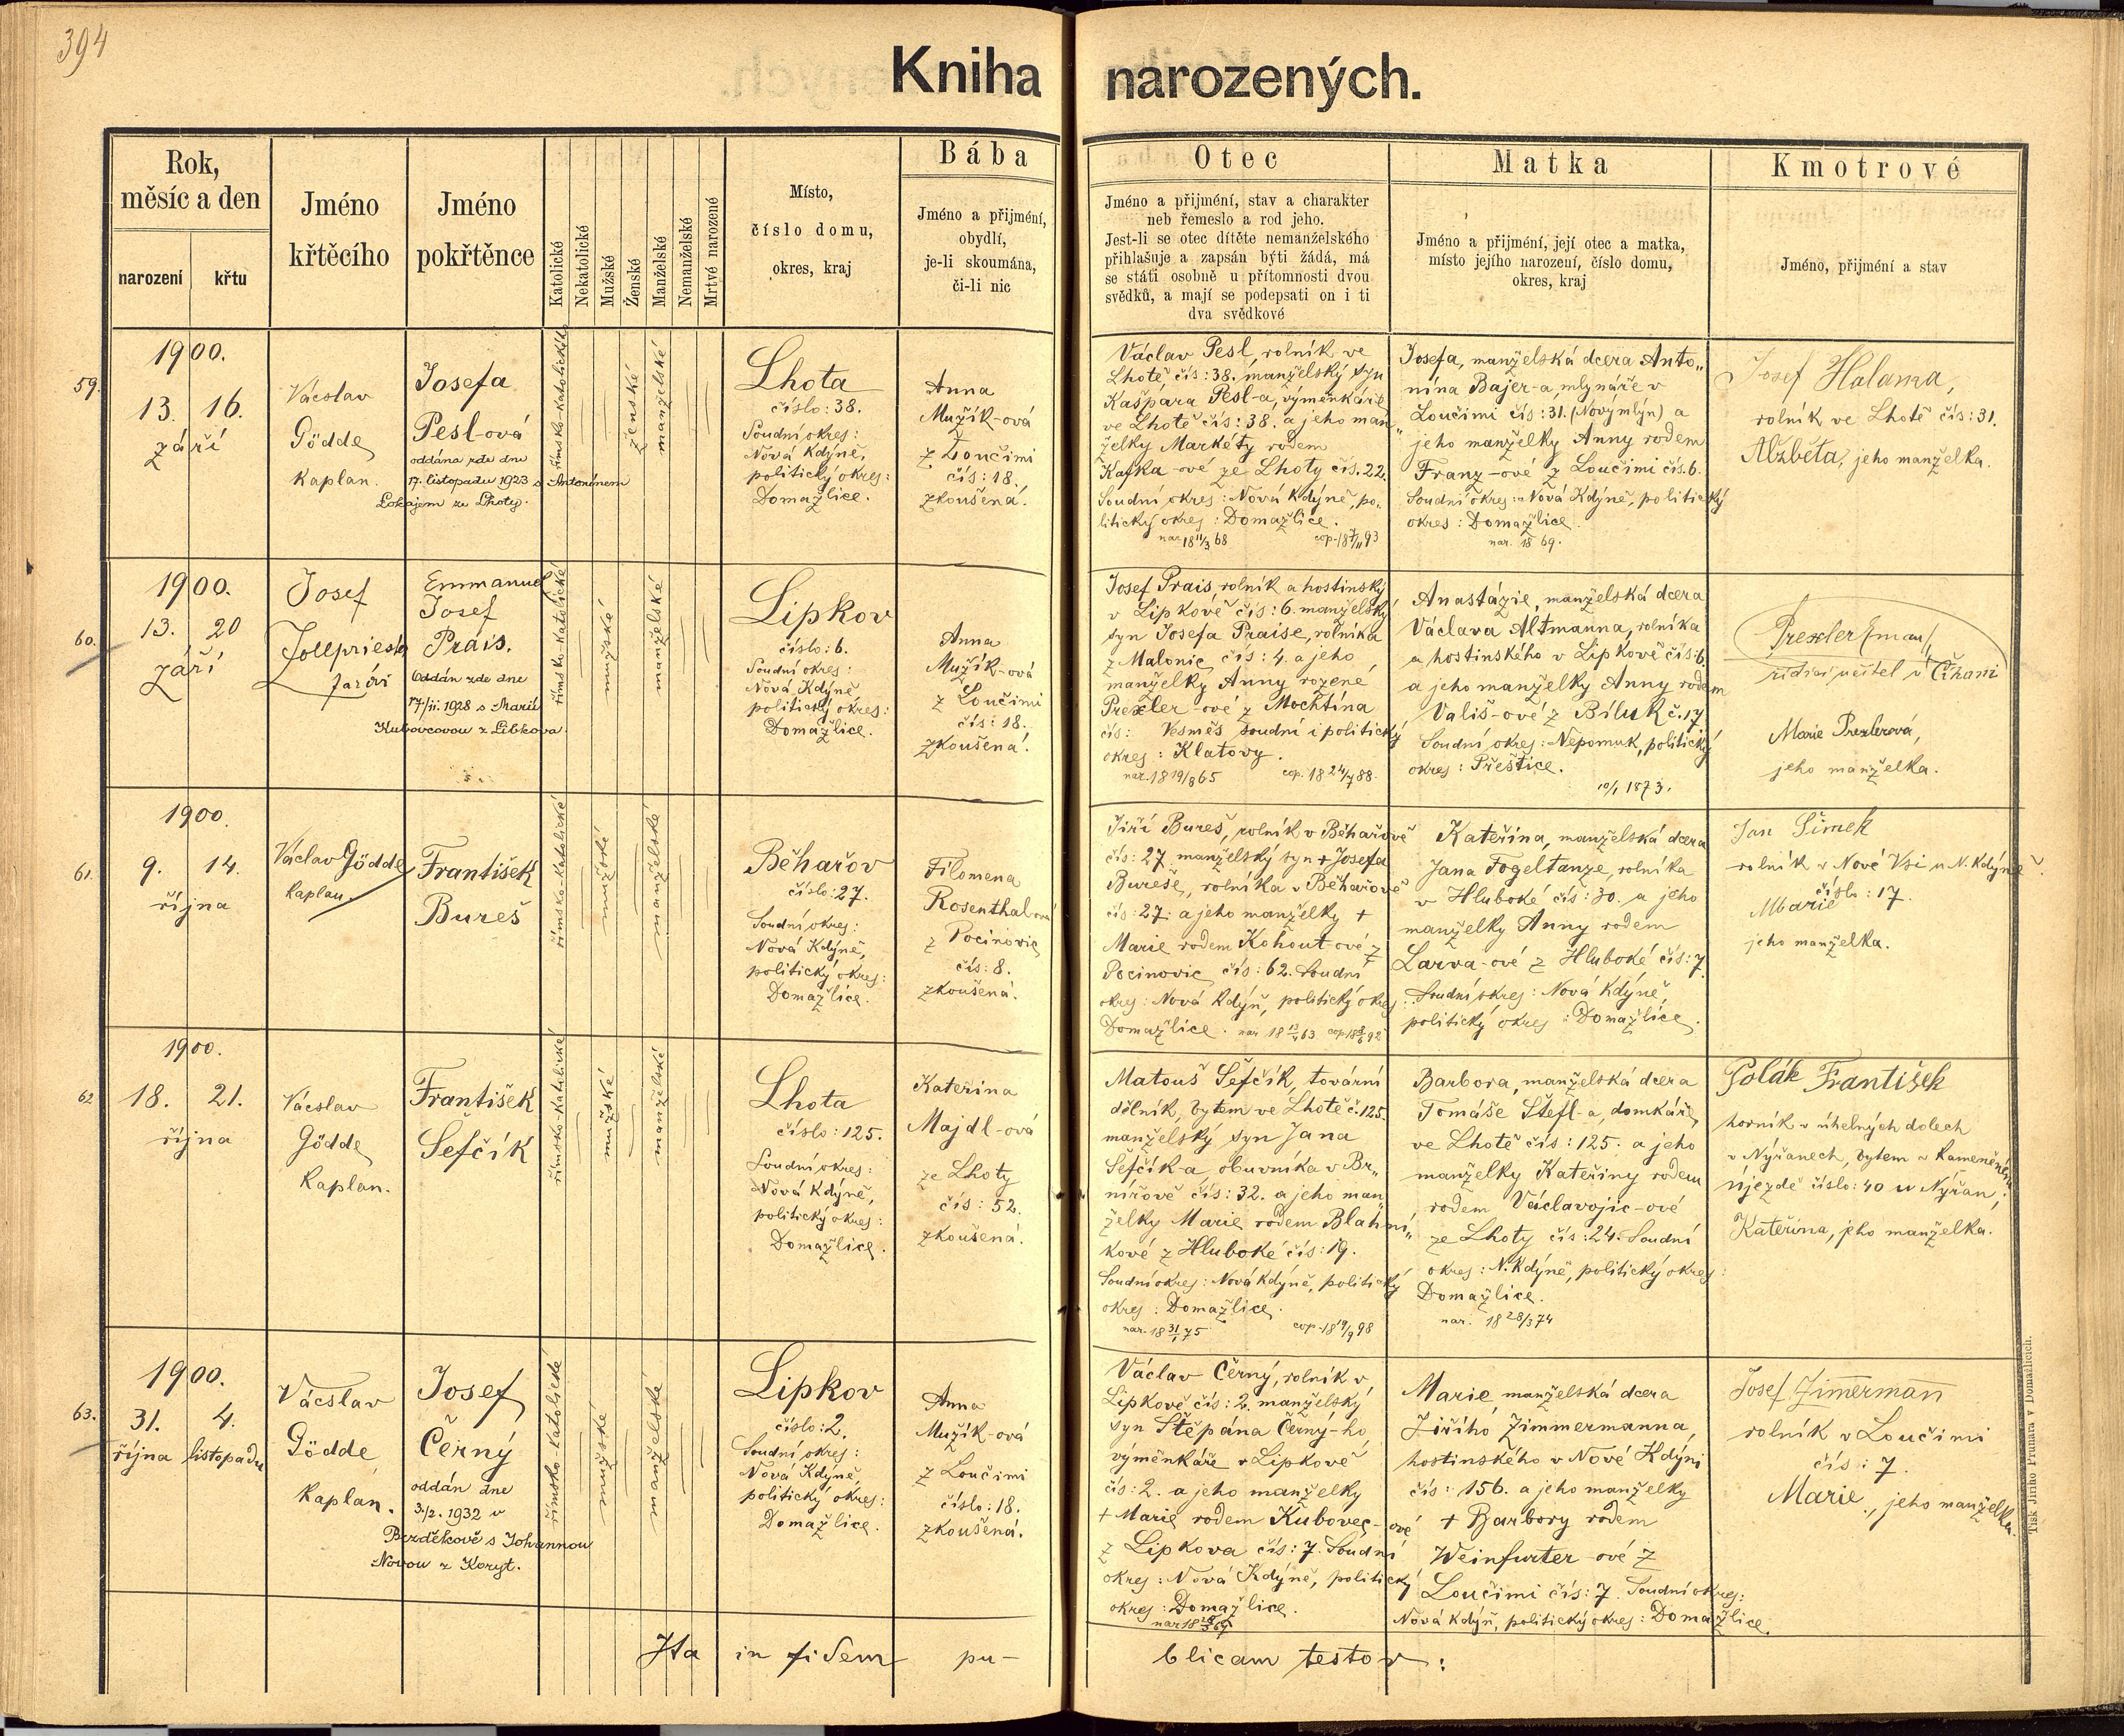 394
Kniha narozených.
Rok,
měsíc a den
narození
křtu
Jméno
křtěcího
Jméno
pokřtěnce
Katolické
Nekatolické
Mužské
Ženské
Manželské
Nemanželské
Mrtvé narozené
Místo,
číslo domu,
okres, kraj
Bába
Jméno a přijmení,
obydlí,
je-li skoumána,
či-li nic
Otec
Jméno a přijmení, stav a charakter
neb řemeslo a rod jeho.
Jest-li se otec dítěte nemanželského
přihlašuje a zapsán býti žádá, má
se státi osobně u přítomnosti dvou
svědků, a mají se podepsati on i ti
dva svědkové
Matka
Jméno a přijmení, její otec a matka,
místo jejího narození, číslo domu,
okres, kraj
Kmotrové
Jméno, přijmení a stav
59.
1900.
13. 16.
září
Václav
Gödde
Kaplan.
Josefa
Pesl-ová
oddána zde dne
17. listopadu 1923 s Antonínem
Lokajem ze Lhoty.
římsko-katolické
ženské
manželské
Lhota
číslo: 38.
Soudní okres:
Nová Kdýně,
politický okres:
Domažlice.
Anna
Mužík-ová
z Loučimi
čís: 18.
zkoušená.
Václav Pesl, rolník ve
Lhotě, čís: 38. manželský syn
Kašpara Pesl-a, výměnkáře
ve Lhotě čís: 38. a jeho man„
želky Markéty rodem
Kafka-ové ze Lhoty čís. 22.
Soudní okres: Nová Kdýně, po„
litický okres: Domažlice.
nar. 18 11/3 68
Josefa, manželská dcera Anto„
nína Bajer-a, mlynáře v
Loučimi čís: 31. (Nový mlýn) a
jeho manželky Anny rodem
Franz-ové z Loučimi čís. 6.
Soudní okres: Nová Kdýně, politický
okres: Domažlice.
nar. 18 69.
Josef Halama,
rolník ve Lhotě čís: 31.
Alžběta, jeho manželka.
60.
1900.
13. 20
září
Josef
Jollpriest
farář
Emmanuel
Josef
Prais.
Oddán zde dne
17/II. 1928 s Marií
Kubovcovou z Libkova.
římsko-katolické
mužské
manželské
Lipkov
číslo: 6.
Soudní okres:
Nová Kdýně
politický okres:
Domažlice.
Anna
Mužík-ová
z Loučimi
čís: 18.
zkoušená.
Josef Prais, rolník a hostinský
v Lipkově čís: 6. manželský
syn Josefa Praise, rolníka
z Malonic čís: 4. a jeho
manželky Anny rozené
Prexler-ové z Mochtína
čís: Vesměs soudní i politický
okres: Klatovy.
nar. 18 19/8 65
cop. 18 24/7 88.
Anastázie, manželská dcera
Václava Altmanna, rolníka
a hostinského v Lipkově čís: 6.
a jeho manželky Anny rodem
Vališ-ové z Bíluk č. 17
Soudní okres: Nepomuk, politický
okres: Přeštice.
10/1 1873.
řídící učitel v Číhani
Marie Prexlerová,
jeho manželka.
61.
1900.
9. 14.
října
Václav Gödde
Kaplan.
František
Bureš
římsko-katolické
mužské
manželské
Běhařov
číslo: 27.
Soudní okres:
Nová Kdýně,
politický okres:
Domažlice.
Filomena
Rosenthal-ová
z Pocinovic
čís: 8.
zkoušená.
Jiří Bureš, rolník v Běhařově
čís: 27. manželský syn + Josefa
Bureše, rolníka v Běhařově
čís: 27. a jeho manželky +
Marie rodem Kohout-ové z
Pocinovic čís: 62. Soudní
okres: Nová Kdýň, politický okres:
Domažlice.
Kateřina, manželská dcera
Jana Fogeltanze, rolníka
v Hluboké čís: 30. a jeho
manželky Anny rodem
Larva-ové z Hluboké čís: 7.
Soudní okres: Nová Kdýně,
politický okres: Domažlice.
Jan Šimek
rolník v Nové Vsi u N. Kdýně.
číslo: 17.
Marie
jeho manželka.
62
1900.
18. 21.
října
Václav
Gödde
Kaplan.
František
Šefčík
římsko-katolické
mužské
manželské
Lhota
číslo: 125.
Soudní okres:
Nová Kdýně,
politický okres:
Domažlice.
Kateřina
Majdl-ová
ze Lhoty
čís: 52.
zkoušená.
Matouš Šefčík, tovární
dělník, bytem ve Lhotě č. 125.
manželský syn Jana
Šefčík-a obuvníka v Br„
nířově čís: 32. a jeho man„
želky Marie rodem Blahní„
kové z Hluboké čís: 19.
Soudní okres: Nová Kdýně, politický
okres: Domažlice.
nar. 18 31/1 75
cop. 18 19/9 98
Barbora, manželská dcera
Tomáše Štefl-a, domkáře,
ve Lhotě čís: 125. a jeho
manželky Kateřiny rodem
rodem Václavojic-ové
ze Lhoty čís: 24. Soudní
okres: N. Kdýně, politický okres:
Domažlice.
nar. 18 28/3 74
Polák František
horník v úhelných dolech
v Nýřanech, bytem v Kameném
Újezdě číslo: 40 u Nýřan,
Kateřina, jeho manželka.
63.
1900.
31. 4.
října listopadu
Václav
Gödde
Kaplan.
Josef
Černý
oddán dne
3./2. 1932 v
Bezděkově s Johannou
Novou z Koryt.
římsko-katolické
mužské
manželské
Lipkov
číslo: 2.
Soudní okres:
Nová Kdýně,
politický okres:
Domažlice.
Anna
Mužík-ová
z Loučimi
číslo: 18.
zkoušená.
Václav Černý, rolník v
Lipkově čís: 2. manželský
syn Štěpána Černý-ho,
výměnkáře v Lipkově
čís: 2. a jeho manželky
+ Marie rodem Kubovec-ové
z Lipkova čís: 7. Soudní
okres: Nová Kdýně, politický
okres: Domažlice.
Marie, manželská dcera
Jiřího Zimmermanna,
hostinského v Nové Kdýni
čís: 156. a jeho manželky
+ Barbory rodem
Weinfurter-ové z
Loučimi čís: 7. Soudní okres:
Nová Kdýň, politický okres: Domažlice.
Josef Zimerman
rolník v Loučimi
čís: 7.
Marie, jeho manželka.
Ita in fidem pu-
blicam testor:
Tisk Jiřího Prunara v Domažlicích.